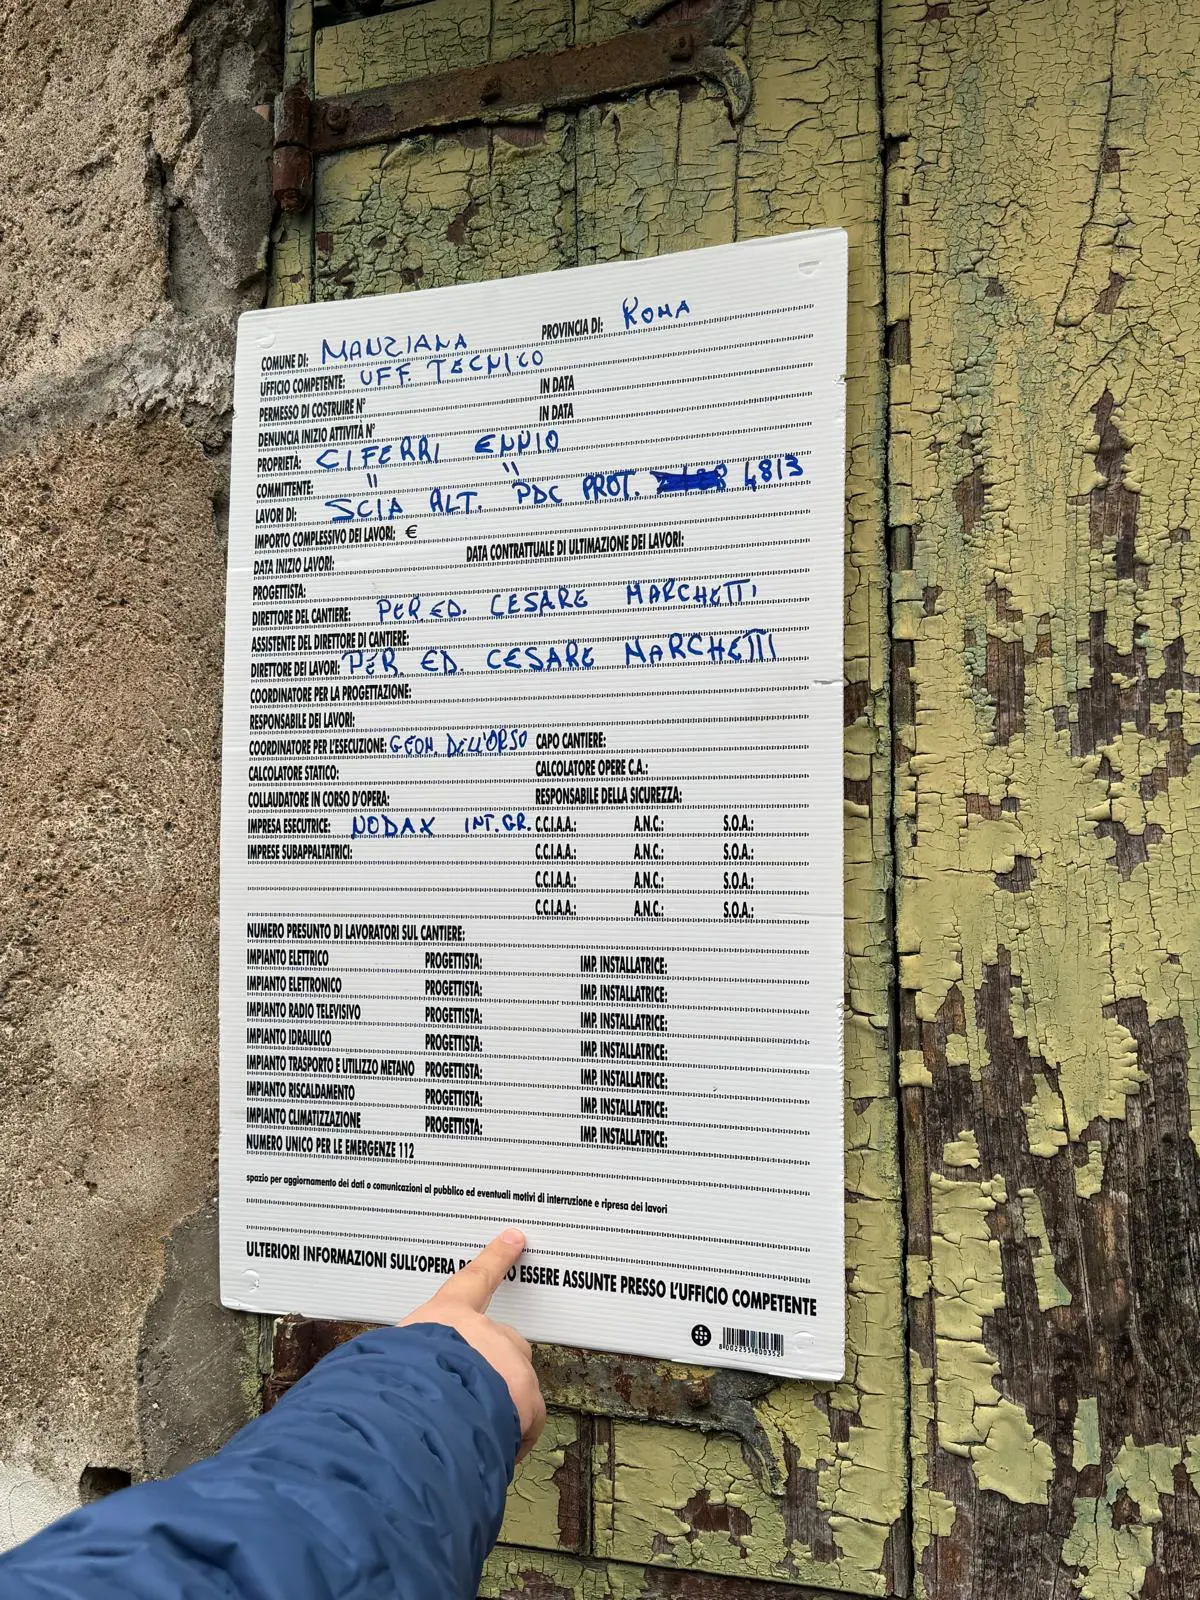 COMUNE DI: MANZIANA PROVINCIA DI: ROMA
UFFICIO COMPETENTE: UFF. TECNICO
PERMESSO DI COSTRUIRE N° IN DATA
DENUNCIA INIZIO ATTIVITÀ N° IN DATA
PROPRIETÀ: CIFERRI ENNIO
COMMITTENTE: " "
LAVORI DI: SCIA ALT. PDC PROT. 4813
IMPORTO COMPLESSIVO DEI LAVORI: €
DATA INIZIO LAVORI: DATA CONTRATTUALE DI ULTIMAZIONE DEI LAVORI:
PROGETTISTA:
DIRETTORE DEL CANTIERE: PER. ED. CESARE MARCHETTI
ASSISTENTE DEL DIRETTORE DI CANTIERE:
DIRETTORE DEI LAVORI: PER. ED. CESARE MARCHETTI
COORDINATORE PER LA PROGETTAZIONE:
RESPONSABILE DEI LAVORI:
COORDINATORE PER L'ESECUZIONE: GEOM. DELL'ORSO CAPO CANTIERE:
CALCOLATORE STATICO: CALCOLATORE OPERE C.A.:
COLLAUDATORE IN CORSO D'OPERA: RESPONSABILE DELLA SICUREZZA:
IMPRESA ESECUTRICE: NODAX INT. GR. C.C.I.A.A.: A.N.C.: S.O.A.:
IMPRESE SUBAPPALTATRICI: C.C.I.A.A.: A.N.C.: S.O.A.:
C.C.I.A.A.: A.N.C.: S.O.A.:
C.C.I.A.A.: A.N.C.: S.O.A.:
NUMERO PRESUNTO DI LAVORATORI SUL CANTIERE:
IMPIANTO ELETTRICO PROGETTISTA: IMP. INSTALLATRICE:
IMPIANTO ELETTRONICO PROGETTISTA: IMP. INSTALLATRICE:
IMPIANTO RADIO TELEVISIVO PROGETTISTA: IMP. INSTALLATRICE:
IMPIANTO IDRAULICO PROGETTISTA: IMP. INSTALLATRICE:
IMPIANTO TRASPORTO E UTILIZZO METANO PROGETTISTA: IMP. INSTALLATRICE:
IMPIANTO RISCALDAMENTO PROGETTISTA: IMP. INSTALLATRICE:
IMPIANTO CLIMATIZZAZIONE PROGETTISTA: IMP. INSTALLATRICE:
NUMERO UNICO PER LE EMERGENZE 112
spazio per aggiornamento dei dati o comunicazioni al pubblico ed eventuali motivi di interruzione e ripresa dei lavori
ULTERIORI INFORMAZIONI SULL'OPERA ESSERE ASSUNTE PRESSO L'UFFICIO COMPETENTE
8 002255 600352